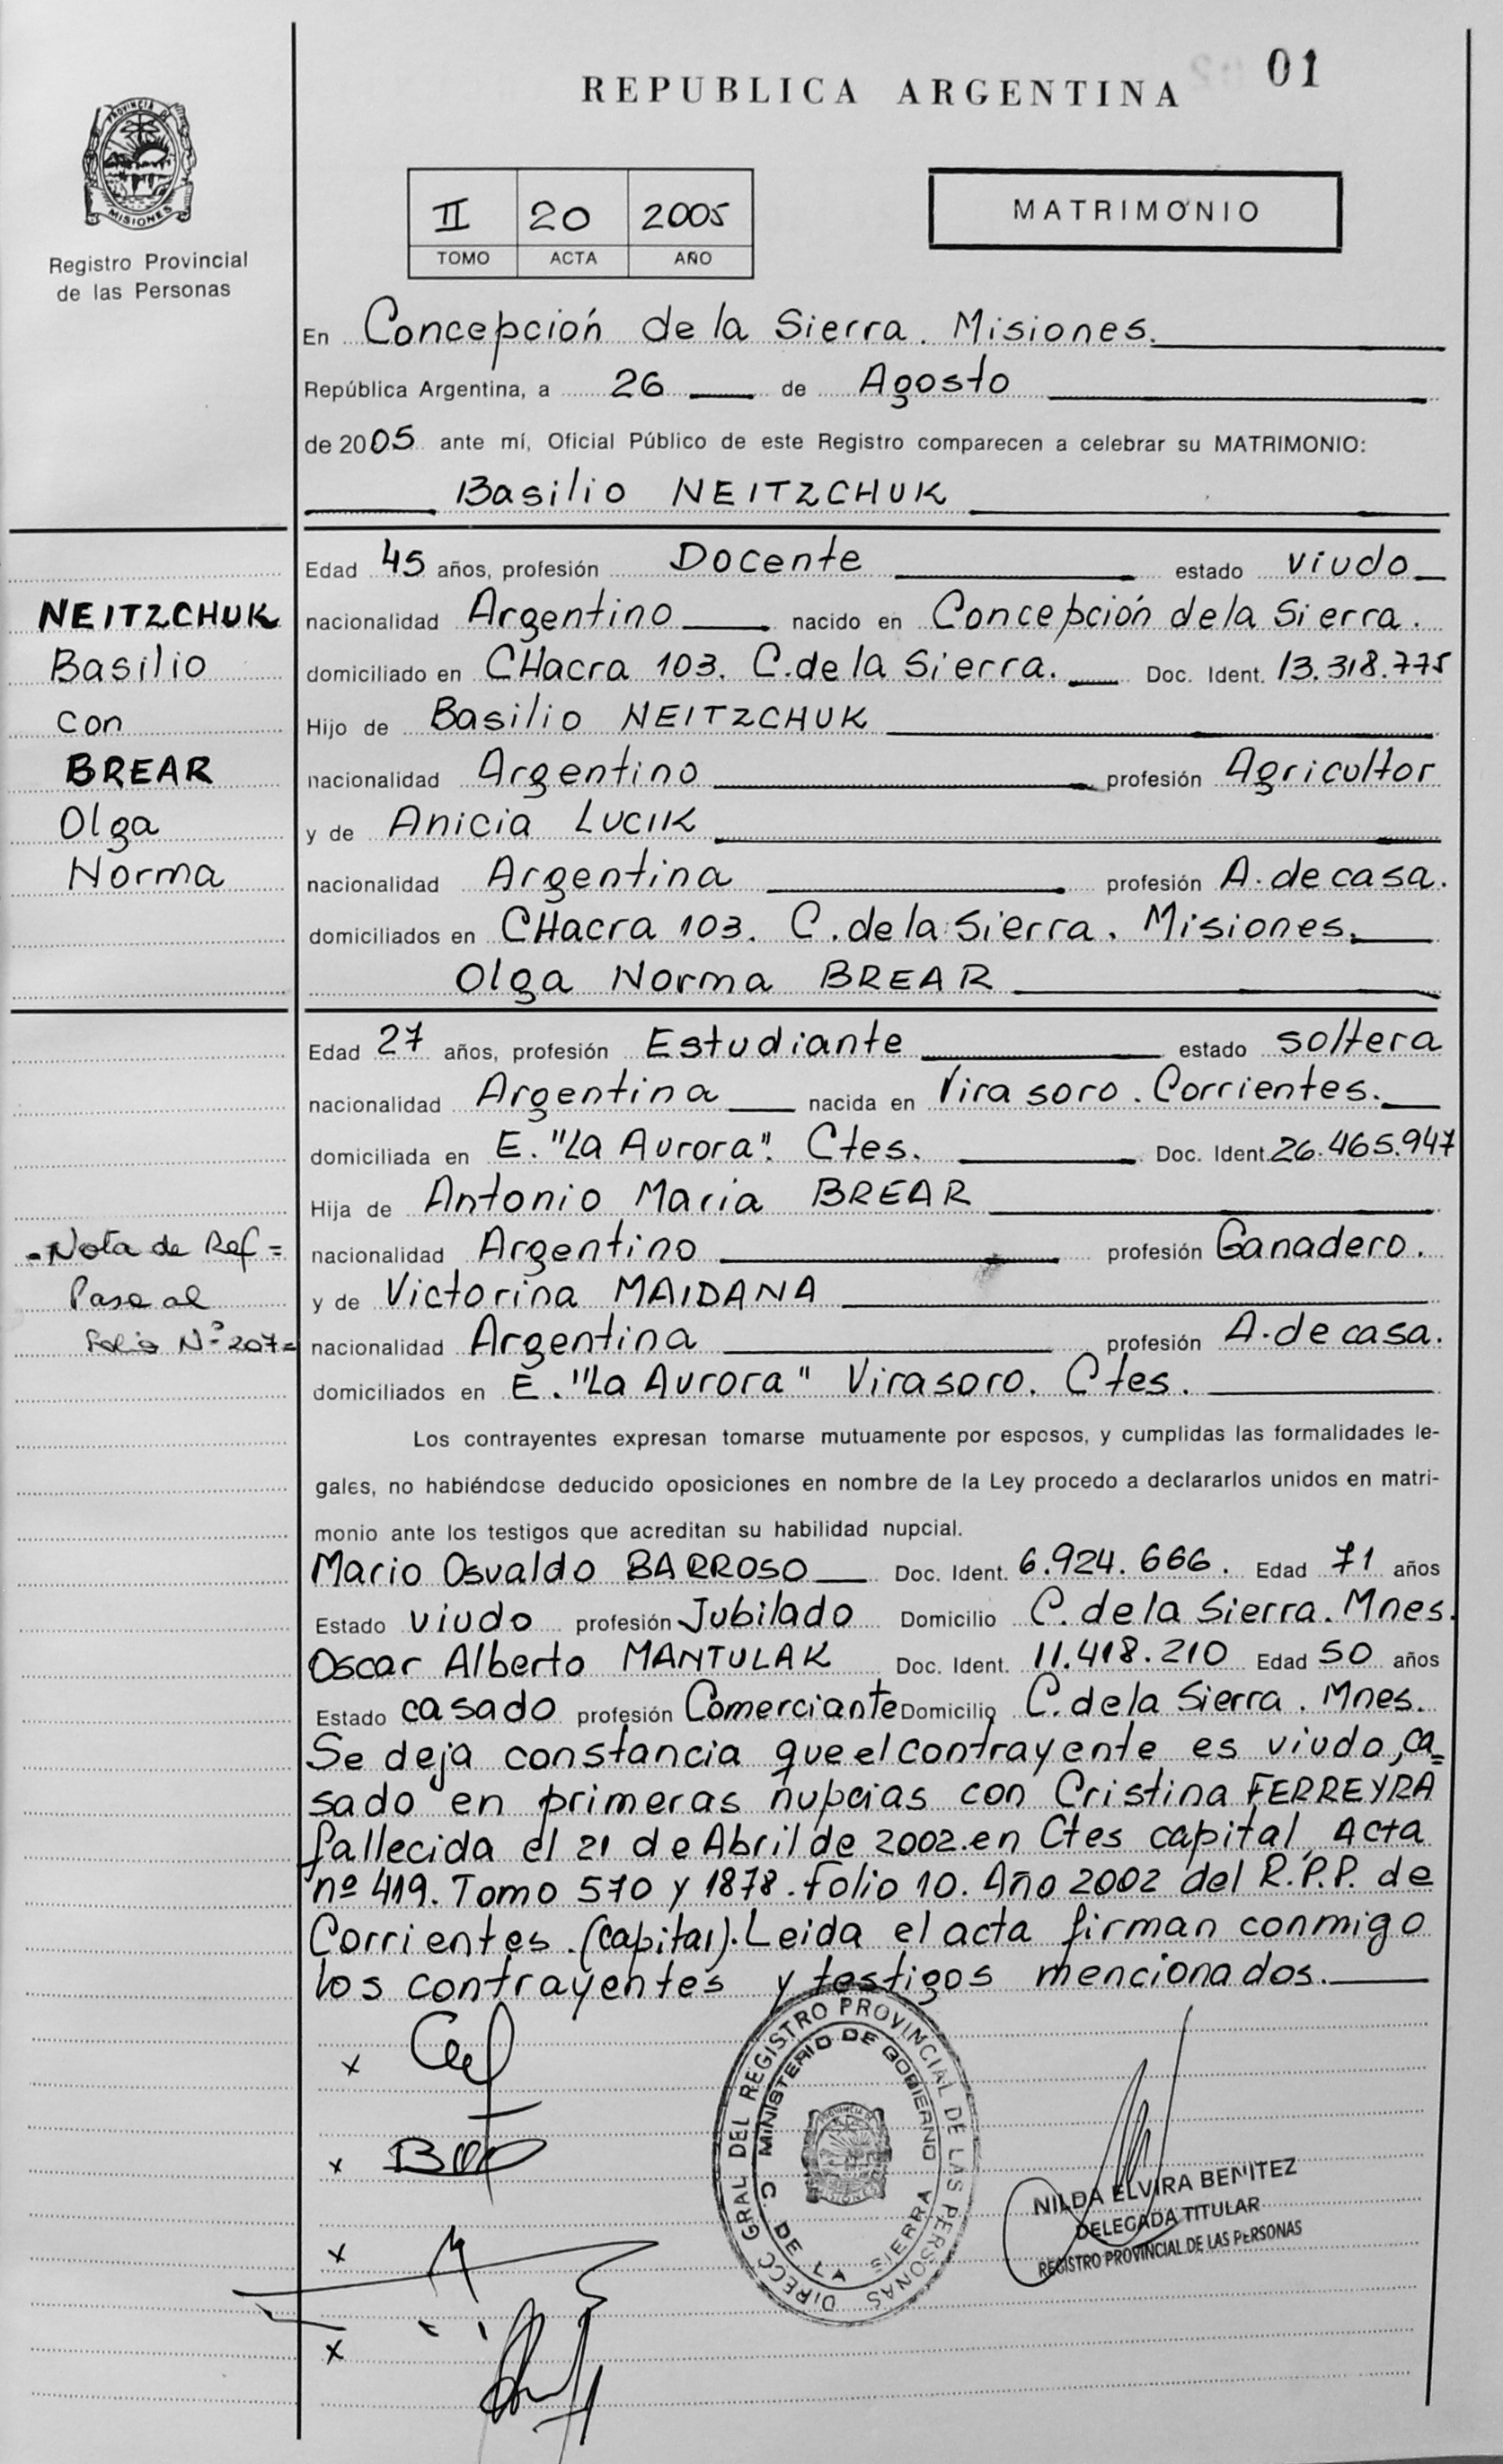 REPUBLICA ARGENTINA
01
PROVINCIA DE MISIONES
Registro Provincial
de las Personas
II 20 2005
TOMO ACTA AÑO
MATRIMONIO
En Concepción de la Sierra. Misiones.
República Argentina, a 26 de Agosto
de 2005 ante mí, Oficial Público de este Registro comparecen a celebrar su MATRIMONIO:
Basilio NEITZCHUK
Edad 45 años, profesión Docente estado viudo
nacionalidad Argentino nacido en Concepción de la Sierra.
domiciliado en CHacra 103. C. de la Sierra. Doc. Ident. 13.318.775
Hijo de Basilio NEITZCHUK
nacionalidad Argentino profesión Agricultor
y de Anicia LUCIK
nacionalidad Argentina profesión A. de casa.
domiciliados en CHacra 103. C. de la Sierra. Misiones.
Olga Norma BREAR
NEITZCHUK
Basilio
con
BREAR
Olga
Norma
Edad 27 años, profesión Estudiante estado soltera
nacionalidad Argentina nacida en Virasoro. Corrientes.
domiciliada en E. "La Aurora". Ctes. Doc. Ident. 26.465.947
Hija de Antonio Maria BREAR
nacionalidad Argentino profesión Ganadero.
y de Victorina MAIDANA
nacionalidad Argentina profesión A. de casa.
domiciliados en E. "La Aurora" Virasoro. Ctes.
- Nota de Ref =
Pase al
Folio Nº 207=
Los contrayentes expresan tomarse mutuamente por esposos, y cumplidas las formalidades le-
gales, no habiéndose deducido oposiciones en nombre de la Ley procedo a declararlos unidos en matri-
monio ante los testigos que acreditan su habilidad nupcial.
Mario Osvaldo BARROSO Doc. Ident. 6.924.666. Edad 71 años
Estado viudo profesión Jubilado Domicilio C. de la Sierra. Mnes.
Oscar Alberto MANTULAK Doc. Ident. 11.418.210 Edad 50 años
Estado casado profesión Comerciante Domicilio C. de la Sierra. Mnes.
Se deja constancia que el contrayente es viudo, ca=
sado en primeras nupcias con Cristina FERREYRA
fallecida el 21 de Abril de 2002. en Ctes capital, Acta
nº 419. Tomo 570 y 1878. Folio 10. Año 2002 del R.P.P. de
Corrientes. (capital). Leida el acta firman conmigo
los contrayentes y testigos mencionados.
x
x
x
x
DIRECC GRAL DEL REGISTRO PROVINCIAL DE LAS PERSONAS
MINISTERIO DE GOBIERNO
C. DE LA SIERRA
NILDA ELVIRA BENITEZ
DELEGADA TITULAR
REGISTRO PROVINCIAL DE LAS PERSONAS